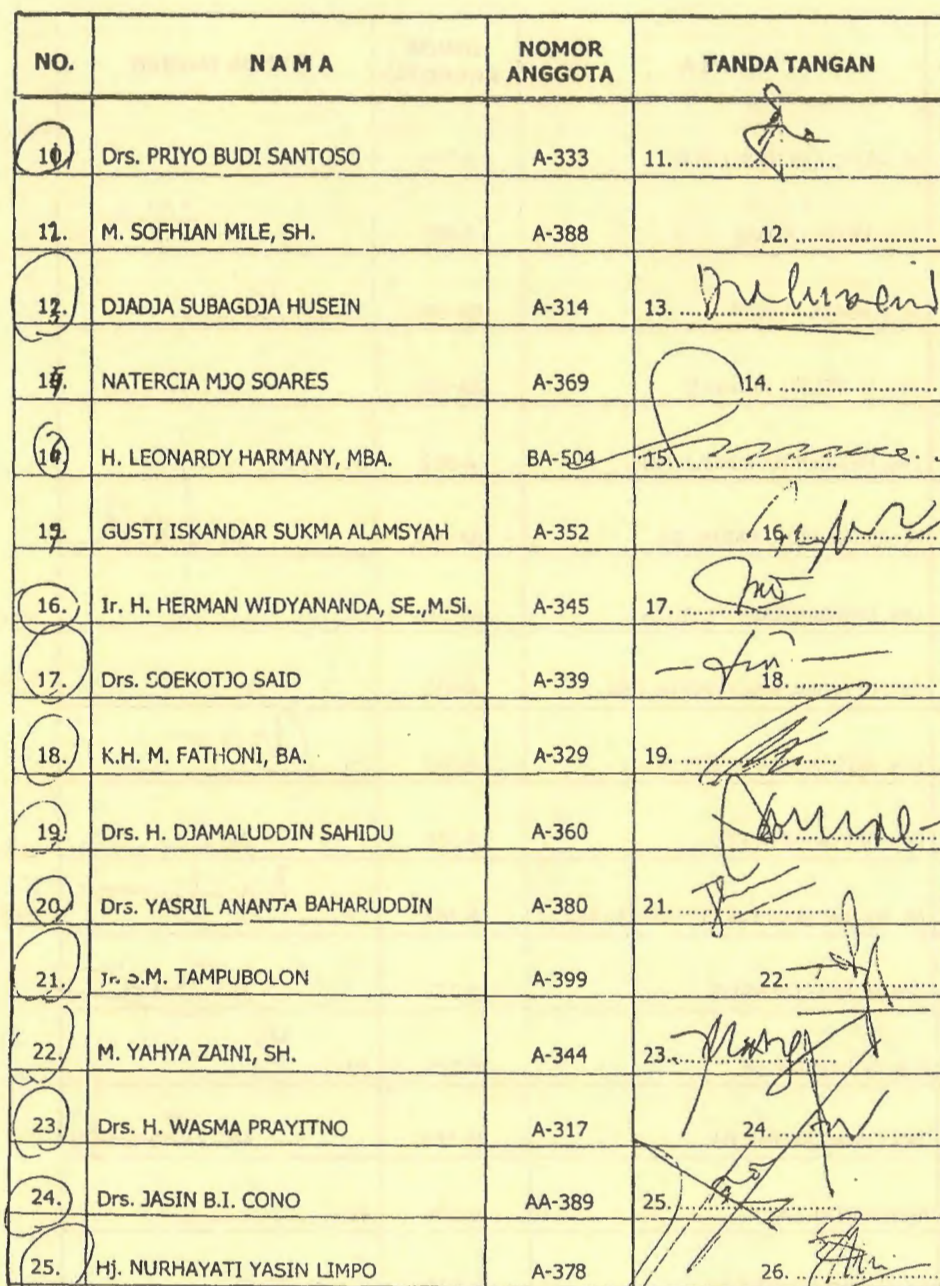 NO. NAMA NOMOR ANGGOTA TANDA TANGAN
10. Drs. PRIYO BUDI SANTOSO A-333 11. ....................
M. SOFHIAN MILE, SH. A-388 12. ....................
DJADJA SUBAGDJA HUSEIN A-314 13. ....................
NATERCIA MJO SOARES A-369 14. ....................
H. LEONARDY HARMANY, MBA. BA-504 15. ....................
GUSTI ISKANDAR SUKMA ALAMSYAH A-352 16. ....................
16. Ir. H. HERMAN WIDYANANDA, SE.,M.Si. A-345 17. ....................
17. Drs. SOEKOTJO SAID A-339 18. ....................
18. K.H. M. FATHONI, BA. A-329 19. ....................
19. Drs. H. DJAMALUDDIN SAHIDU A-360
20. Drs. YASRIL ANANTA BAHARUDDIN A-380 21. ....................
21. Ir. S.M. TAMPUBOLON A-399 22. ....................
22. M. YAHYA ZAINI, SH. A-344 23. ....................
23. Drs. H. WASMA PRAYITNO A-317 24. ....................
24. Drs. JASIN B.I. CONO AA-389 25. ....................
25. Hj. NURHAYATI YASIN LIMPO A-378 26. ....................